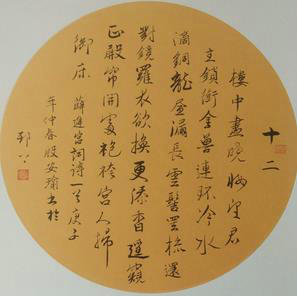 十二
樓中盡曉妝望君
王鎖銜金獸連環冷水
滴銅龍晝漏長雲髻罷梳還
對鏡羅衣欲換更添香遙窺
正殿帘開處袍袴宮人掃
御床
薛逢宮詞詩一首庚子
年仲春殷安瑜書於